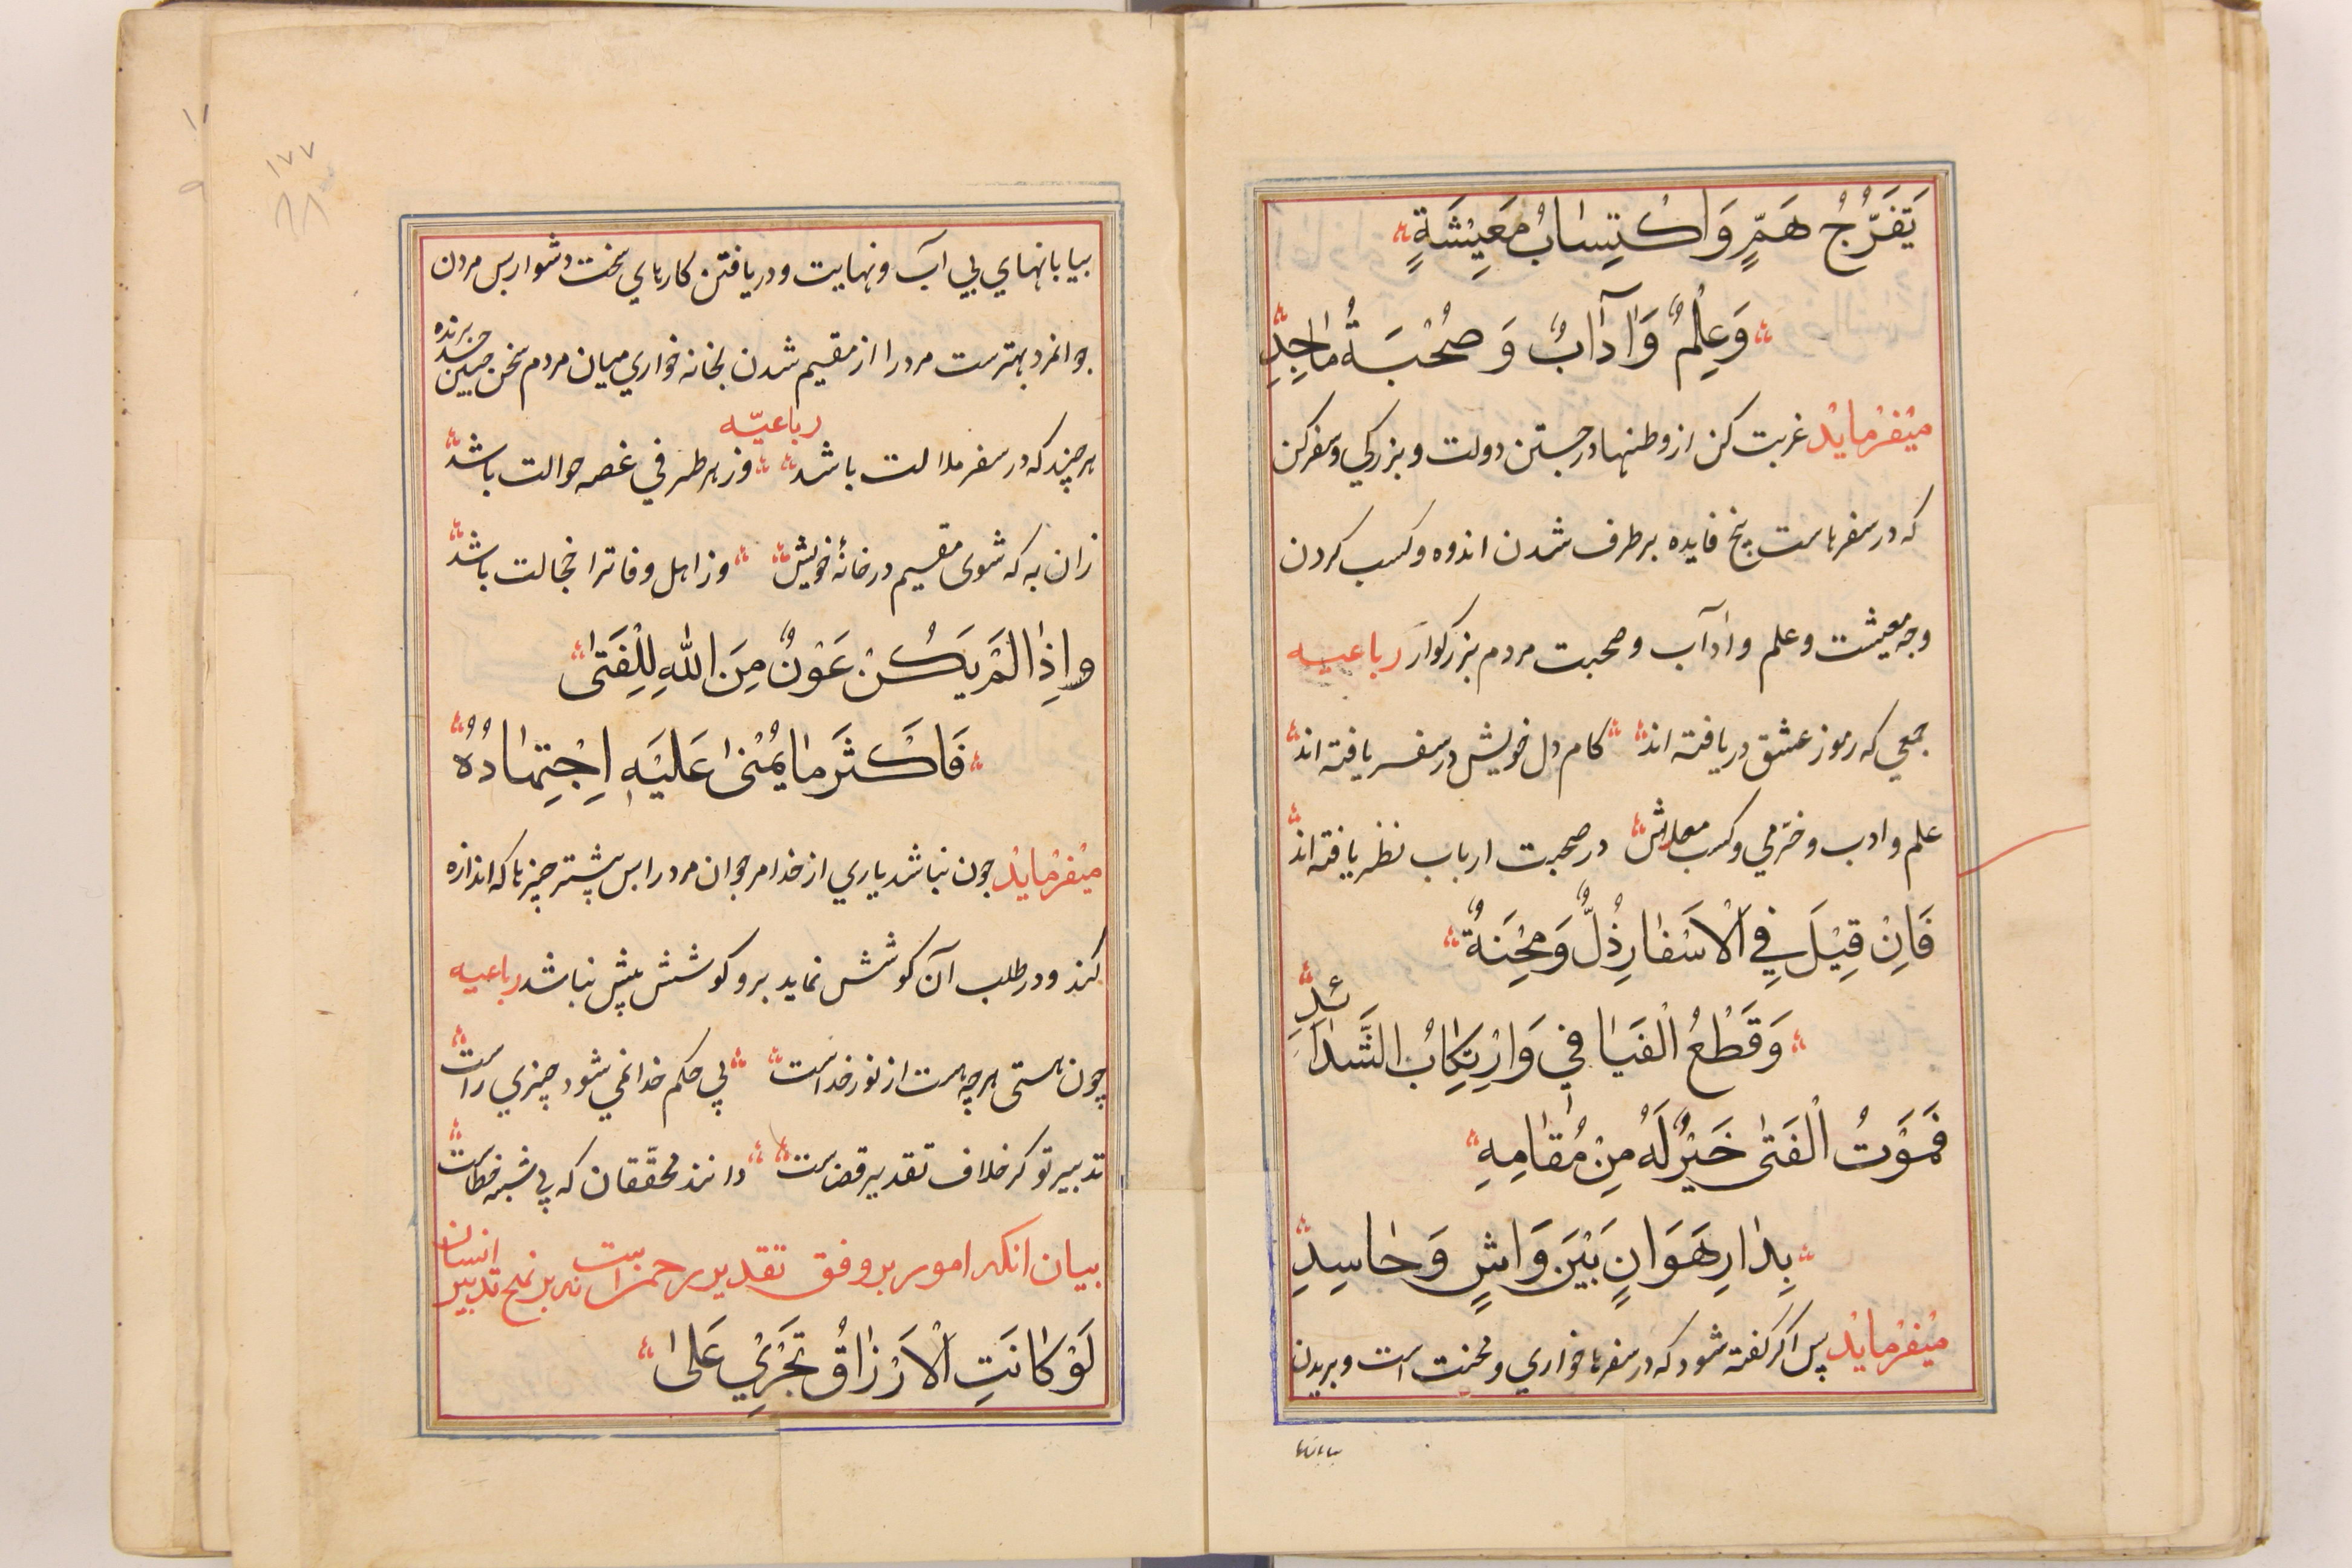 تَفَرُّجُ هَمٍّ وَاكْتِسَابُ مَعِيْشَةٍ
وَعِلْمٌ وَاٰدَابٌ وَصُحْبَةُ مَاجِدِ
میفرماید غربت کن از وطنها در جستن دولت و بزرکي و سفر کن
که در سفرهاست پنج فایده برطرف شدن اندوه و کسب کردن
وجه معیشت و علم و ادآب و صحبت مردم بزرکوار رباعیه
جمعي که رموز عشق دریافته اند کام دل خویش در سفر یافته اند
علم و ادب و خرّمي و کسب معاش در صحبت ارباب نظر یافته اند
فَاِنْ قِيْلَ فِي الْاَسْفَارِ ذُلٌّ وَمِحْنَةٌ
وَقَطْعُ الْفَيَافِي وَارْتِكَابُ الشَّدَائِدِ
فَمَوْتُ الْفَتٰى خَيْرٌ لَهُ مِنْ مُقَامِهِ
بِدَارِ هَوَانٍ بَيْنَ وَاشٍ وَحَاسِدِ
میفرماید پس اکر کفته شود که در سفرها خواري و محنت است و بریدن
بیابانها
۱۷۷
بیابانهاي بي آب و نهایت و دریافتن کارهاي سخت و شوار پس مردن
جوانمرد بهترست مرد را از مقیم شدن بخانه خواري میان مردم سخن چین حسد برنده
رباعیّه
هرچند که در سفر ملالت باشد وز هر طرفي غصه حوالت باشد
زان به که شوی مقیم در خانۀ خویش وز اهل وفا ترا خجالت باشد
وَاِذَا لَمْ يَكُنْ عَوْنٌ مِنَ اللهِ لِلْفَتٰى
فَاَكْثَرَ مَا يُمْنٰى عَلَيْهِ اِجْتِهَادُهُ
میفرماید جون نباشد یاري از خدا مر جوان مرد را پس بیشتر چیزها که اندازه
کند و در طلب آن کوشش نماید برو کوشش پیش نباشد رباعیه
چون هستی هرچه هست از نور خداست بي حکم خدا نمي شود چیزي راست
تدبیر تو کر خلاف تقدیر قضاست دانند محقّقان که بي شبه خطاست
بیان انکه امور بر وفق تقدیر رحمن است نه بر نهج تدبیر انسان
لَوْ كَانَتِ الْاَرْزَاقُ تَجْرِيْ عَلٰى